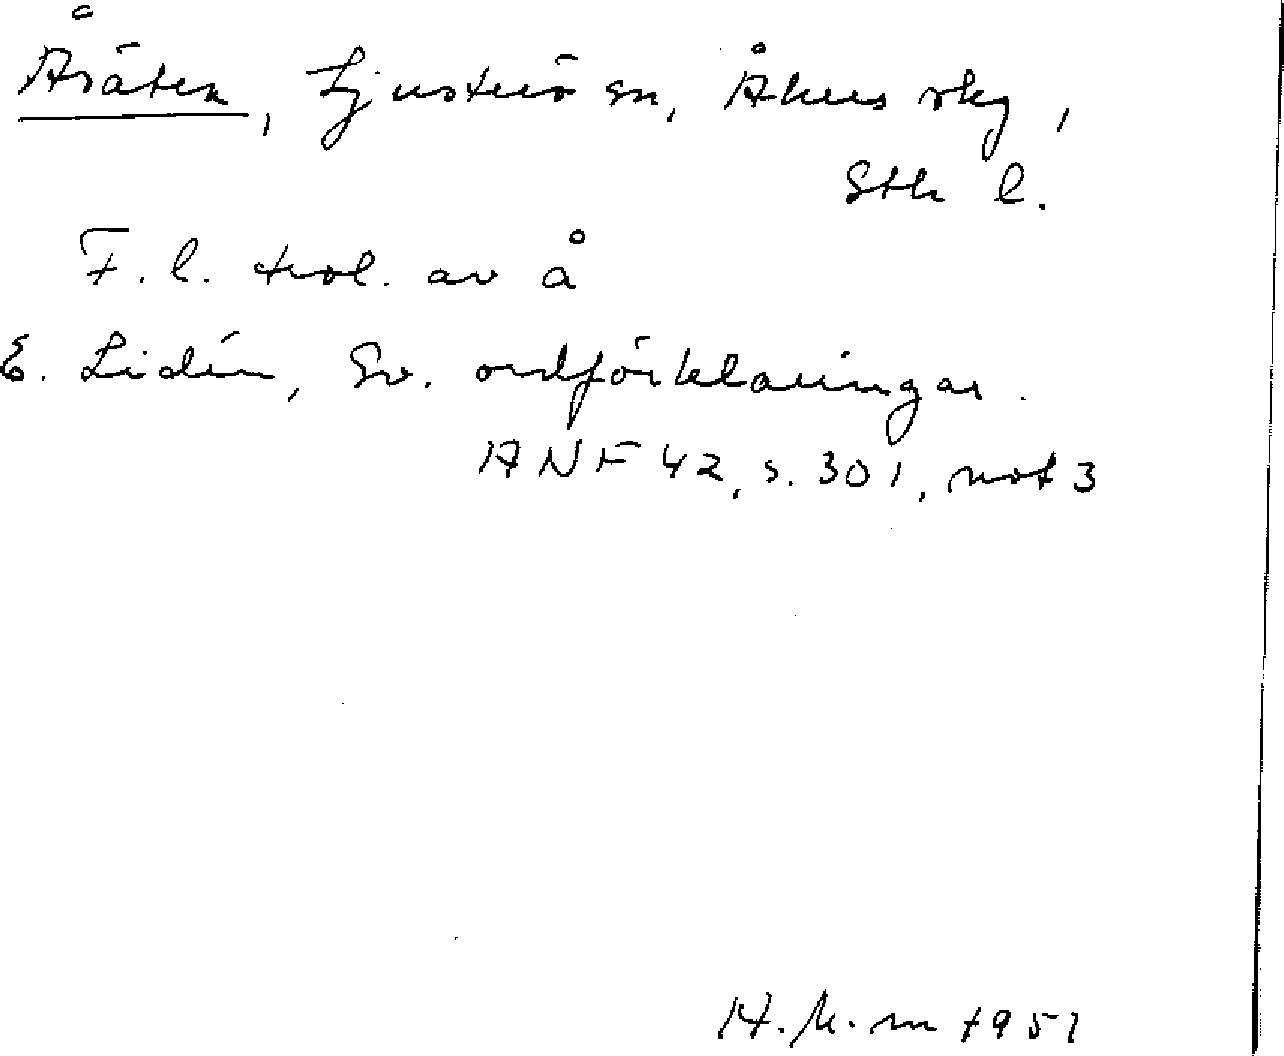 Åsäten, Ljusterö sn, Åkers skg,
Sth l.
F.l. trol. av å
E. Lidén, Sv. ordförklaringar.
ANF 42, s. 301, not 3
1951